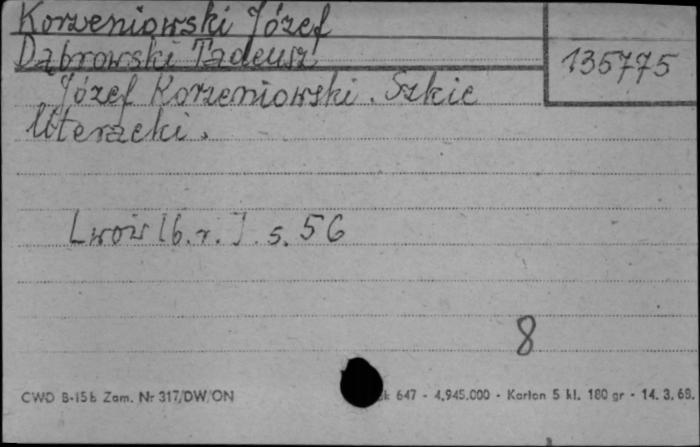 Korzeniowski Józef
Dąbrowski Tadeusz
135775
Józef Korzeniowski. Szkic
literacki.
Lwów [b.r.]. s. 56
8
CWD B-15b Zam. Nr 317/DW/ON
k 647 - 4.945.000 - Karton 5 kl. 180 gr - 14. 3. 68.